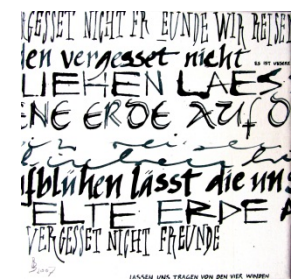 RGESSET NICHT FR EUNDE WIR REISEN
den vergesset nicht
ES IST UNSERE
LIEHEN LAES
ENE ERDE AUF D
fblühen lässt die uns
ELTE ERDE A
VERGESSET NICHT FREUNDE
LASSEN UNS TRAGEN VON DEN VIER WINDEN